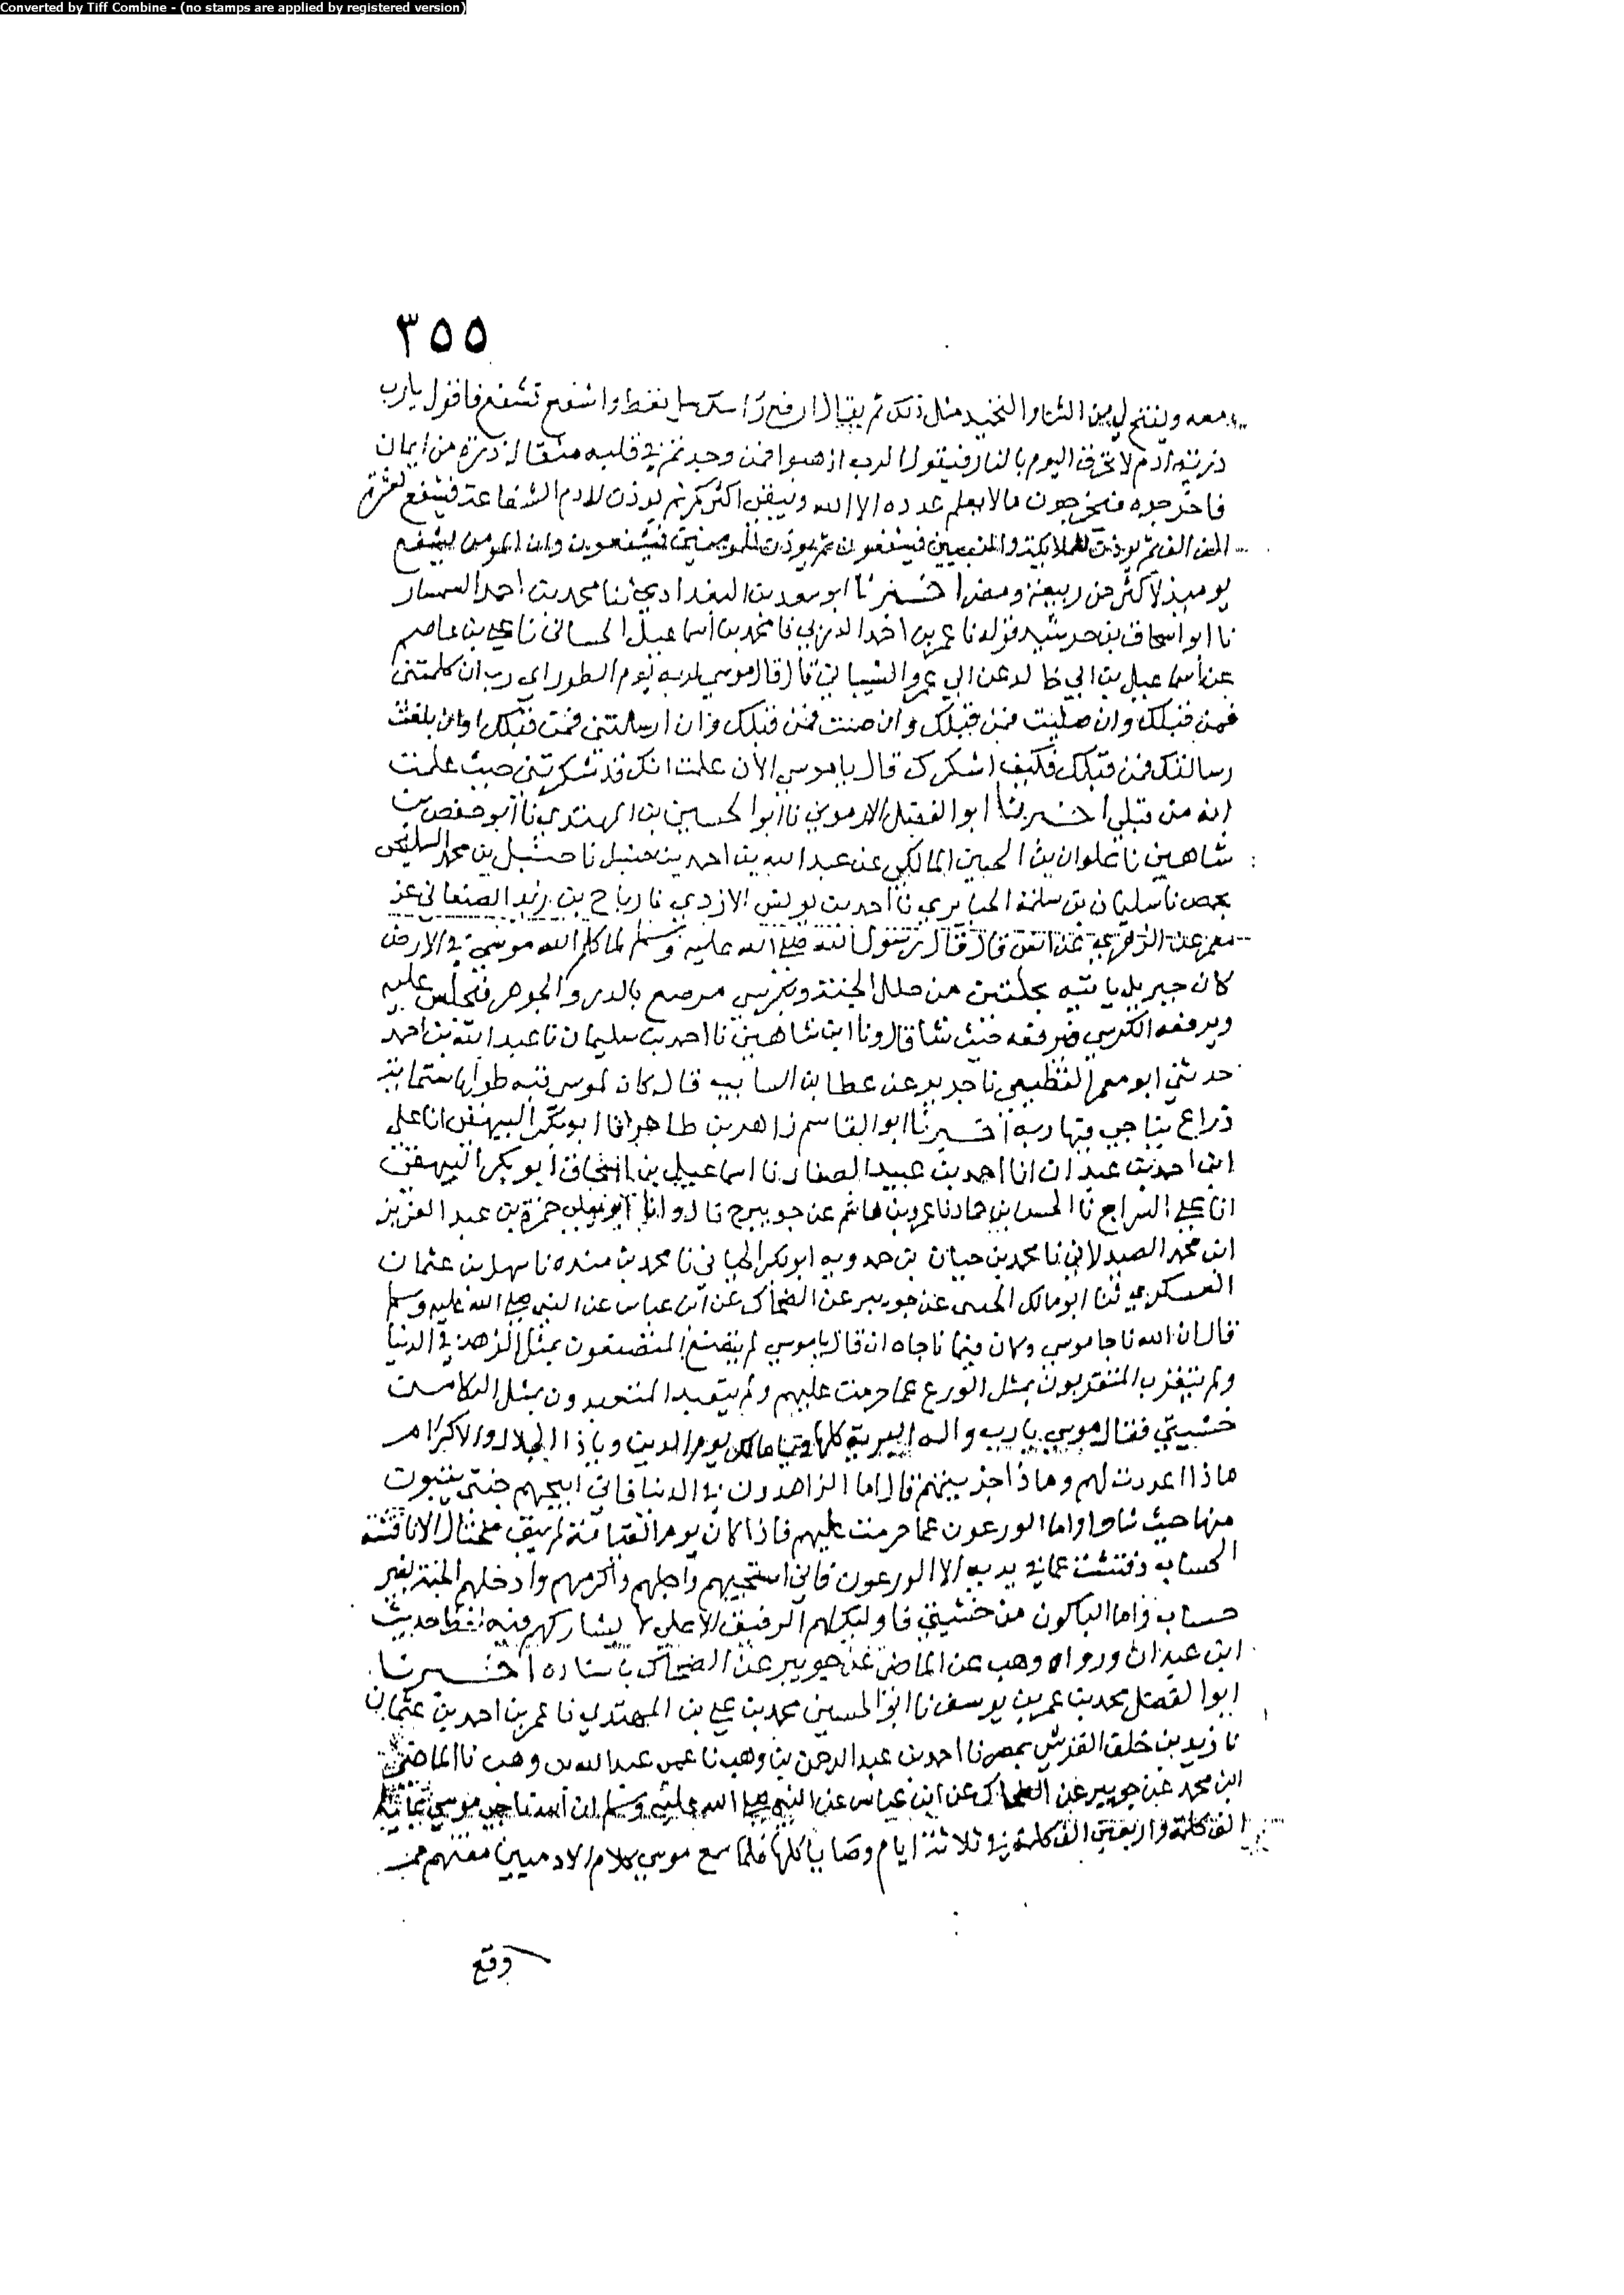 Converted by Tiff Combine - (no stamps are applied by registered version)
٣٥٥
معه ويفتح لي من الثنا والتحيد مثل ذلك ثم يقال ارفع راسك سل تعط واشفع تشفع فاقول يارب
ذريته ادم لا تحرق اليوم بالنار فيقول الرب اذهبوا فمن وجدتم في قلبه مثقال ذرة من ايمان
فاخرجوه فيخرجون مالا يعلم عدده الا الله ويبقى اكثركم ثم يوذن لادم الشفاعة فيشفع لعشرة
الف الف ثم يوذن للملايكة والنبيين فيشفعون ثم يوذن للمومنين فيشفعون وان المومن ليشفع
يوميذ لاكثر من ربيعة ومضر اخبرنا ابو سعد بن البغدادي ثنا محمد بن احمد السمسار
نا ابو اسحاق بن خرشيد قوله نا عمر بن احمد الدربي نا محمد بن اسماعيل الحساني نا علي بن عاصم
عن اسماعيل بن ابي خالد عن ابي عمرو الشيباني قال قال موسى لربه يوم الطور اي رب ان كلمتني
فمن قبلك وان صليت فمن قبلك وان صمت فمن قبلك وان ارسلتني فمن قبلك وان بلغت
رسالتك فمن قبلك فكيف اشكرك قال يا موسى الان علمت انك قد شكرتني حيث علمت
انه من قبلي اخبرنا ابو الفضل الارموي نا ابو الحسين بن المهتدي نا ابو حفص بن
شاهين نا علوان بن الحسين المالكي عن عبد الله بن احمد بن حنبل نا حنبل بن محمد السليحي
بحمص نا سليمان بن سلمة الخبايري نا احمد بن يونس الازدي نا رباح بن زيد الصنعاني عن
معمر عن الزهري عن انس قال قال رسول الله صلى الله عليه وسلم لما كلم الله موسى في الارض
كان جبريل ياتيه بحلتين من حلل الجنة وبكرسي مرصع بالدر والجوهر فيجلس عليه
ويرفعه الكرسي فيرفعه حيث شا قال ونا ابن شاهين نا احمد بن سليمان نا عبد الله بن احمد
حدثني ابو معمر القطيعي نا جرير عن عطا بن السايب قال كان لموسى قبة طولها ستماية
ذراع يناجي فيها ربه اخبرنا ابو القاسم زاهر بن طاهر انا ابو بكر البيهقي انا علي
ابن احمد بن عبدان انا احمد بن عبيد الصفار نا اسماعيل بن اسحاق ابو بكر البيهقي
انا علي السراج نا الحسن بن حماد نا عمرو بن هاشم عن جويبر ح قال وانا ابو يعلى حمزة بن عبد العزيز
ابن محمد الصيدلاني نا محمد بن حبان بن حمدويه ابو بكر الحيانى نا محمد بن منده نا سهل بن عثمان
العسكري ثنا ابو مالك الجنبي عن جويبر عن الضحاك عن ابن عباس عن النبي صلى الله عليه وسلم
قال ان الله ناجا موسى وكان فيما ناجاه ان قال يا موسى لم يتصنع المتصنعون بمثل الزهد في الدنيا
ولم يتقرب المتقربون بمثل الورع عما حرمت عليهم ولم يتعبد المتعبدون بمثل البكا من
خشيتي فقال موسى يا رب واله البرية كلها ويا مالك يوم الدين ويا ذا الجلال والاكرام
ماذا اعددت لهم وماذا جزيتهم قال اما الزاهدون في الدنيا فاني ابيحهم جنتي يتبوت
منها حيث شاوا واما الورعون عما حرمت عليهم فاذا كان يوم القيامة لم يبق الا ناقشته
الحساب وفتشت عما في يديه الا الورعون فاني استحييهم واجلهم واكرمهم وادخلهم الجنة بغير
حساب واما الباكون من خشيتي فاوليك لهم الرفيق الاعلى لا يشاركهم فيه لفظ حديث
ابن عبدان ورواه وهب عن الماضي عن جويبر عن الضحاك باسناده اخبرنا
ابو الفضل محمد بن عمر بن يوسف نا ابو الحسين محمد بن علي بن المهتدي نا عمر بن احمد بن عثمان
نا زيد بن خلق القرشي بمصر نا احمد بن عبد الرحمن بن وهب نا عمى عبد الله بن وهب نا الماضي
ابن محمد عن جويبر عن الضحاك عن ابن عباس عن النبي صلى الله عليه وسلم ان الله ناجى موسى بماية
الف كلمة واربعين الف كلمة في ثلاثة ايام وصايا كلها فلما سمع موسى كلام الادميين مقتهم مما
وقع